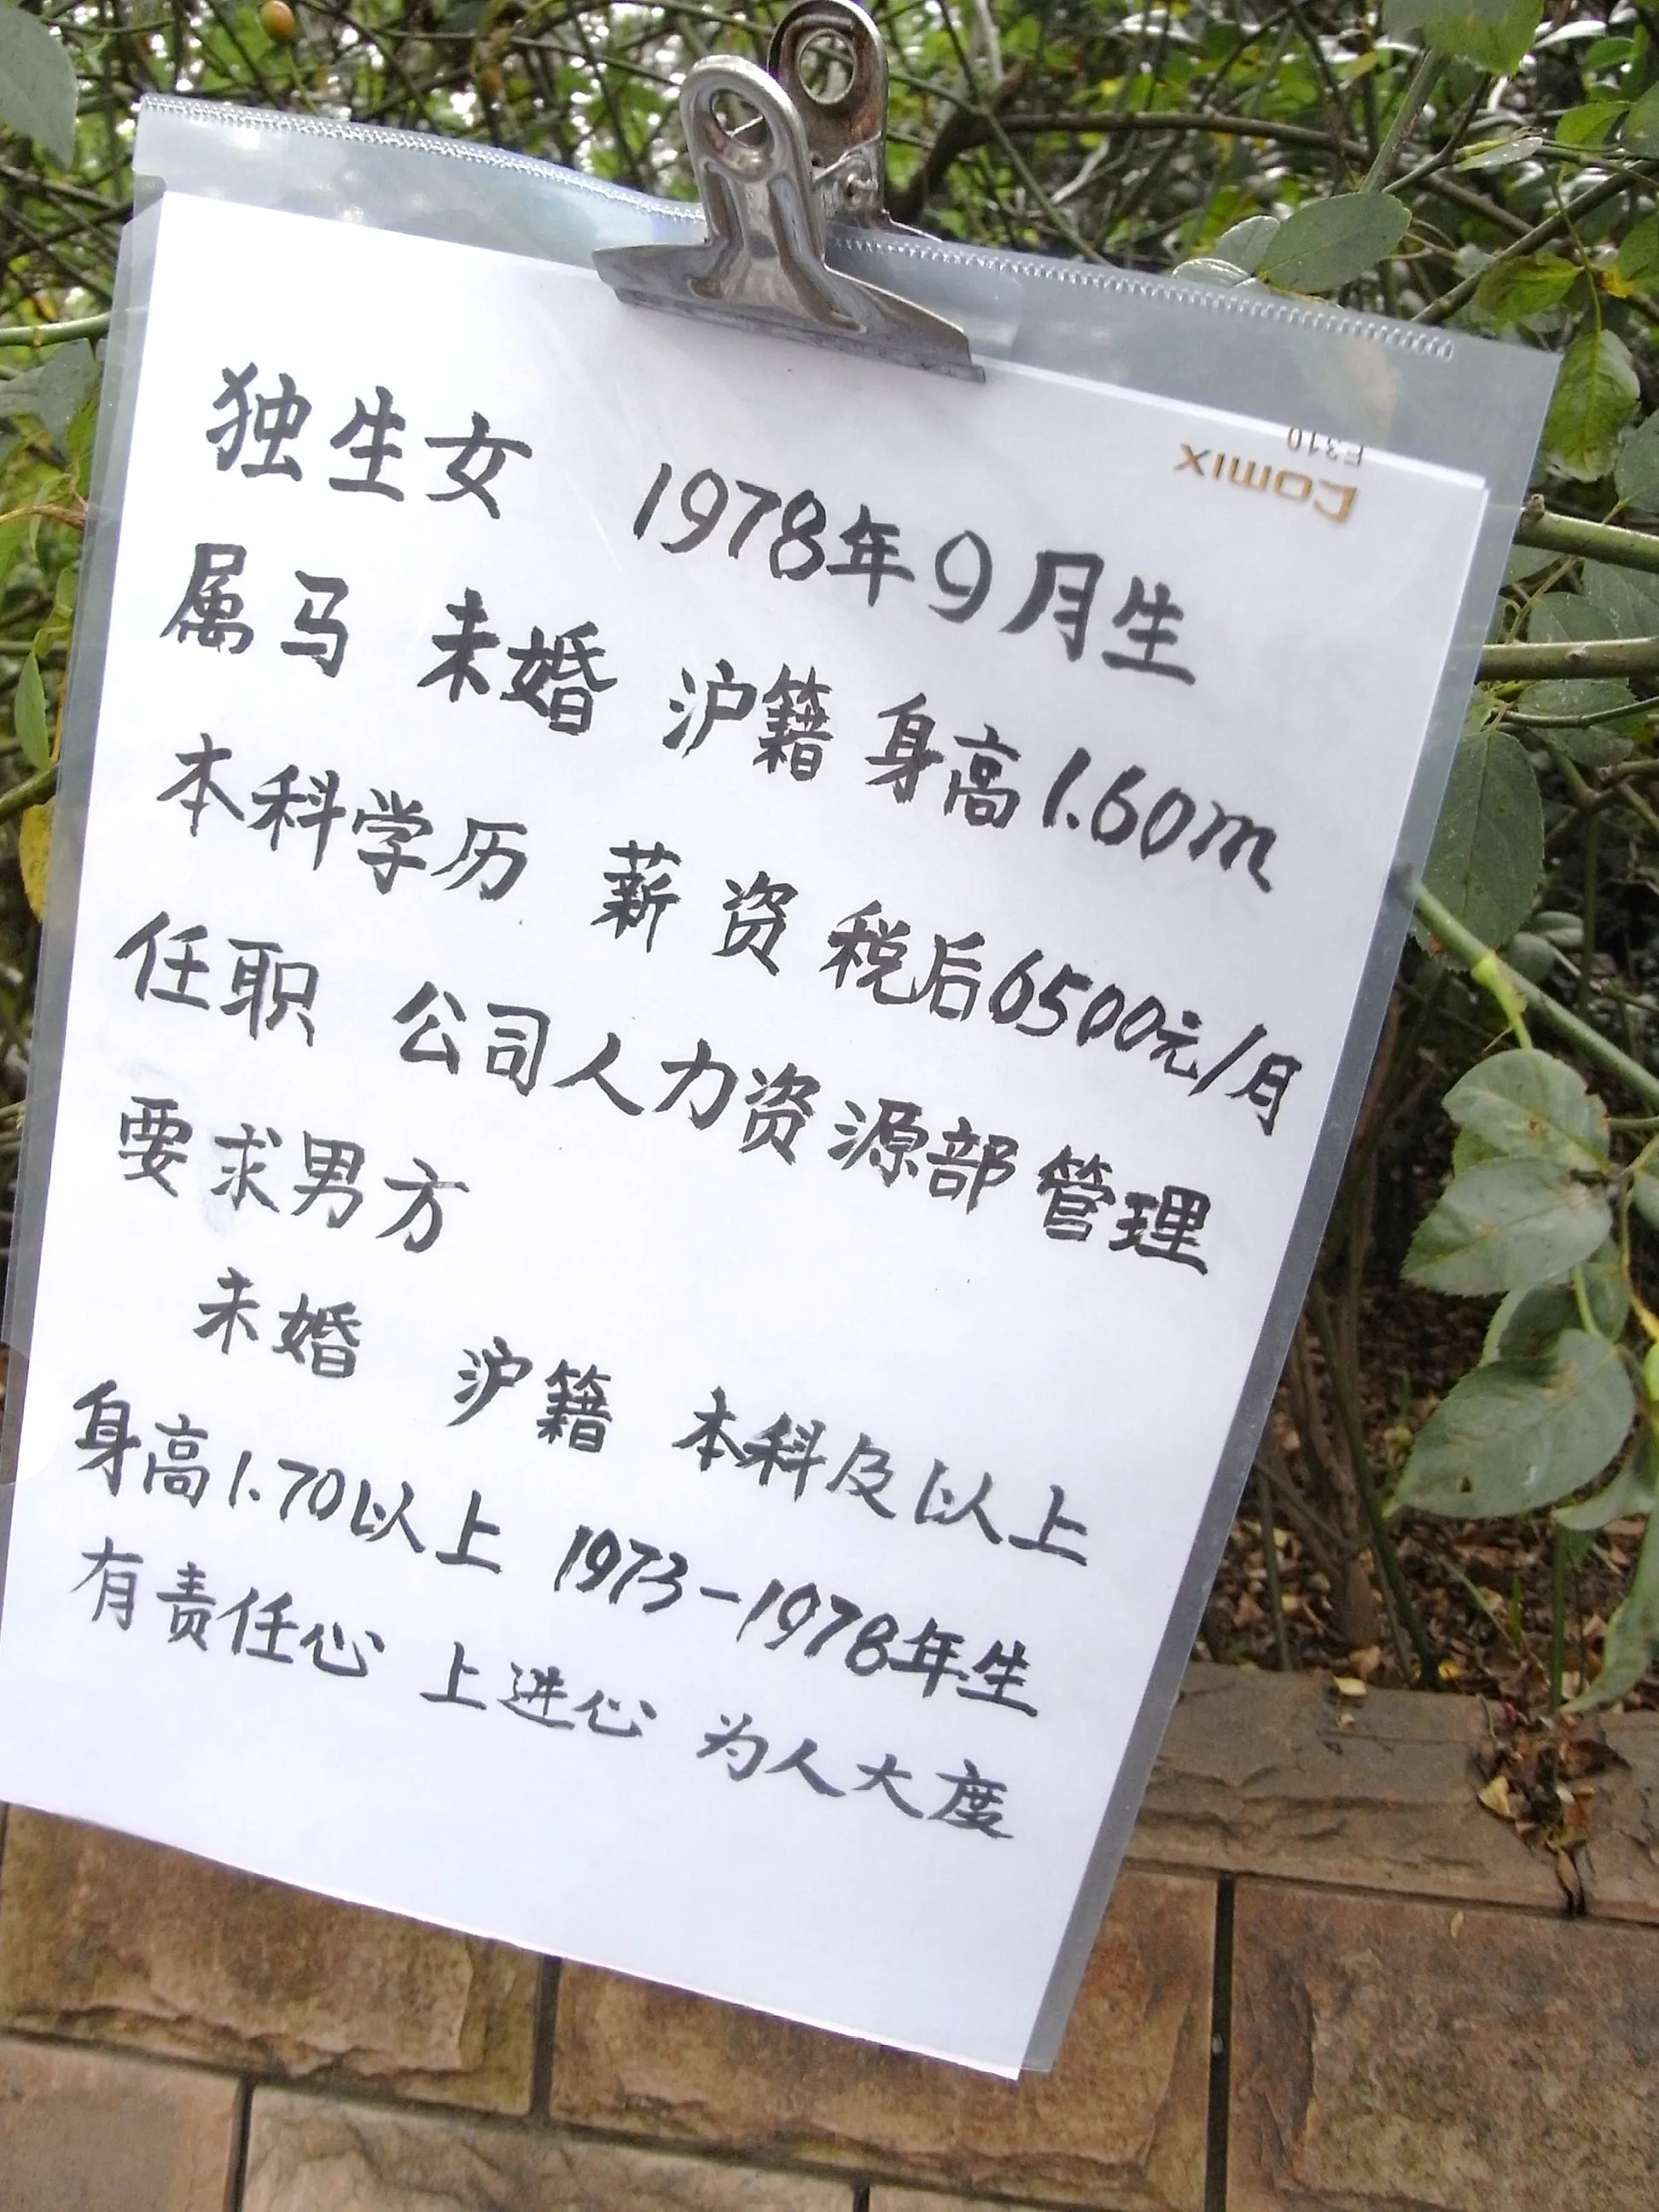 comix
E310
独生女 1978年9月生
属马 未婚 沪籍 身高1.60m
本科学历 薪资 税后6500元/月
任职 公司人力资源部管理
要求男方
未婚 沪籍 本科及以上
身高1.70以上 1973-1978年生
有责任心 上进心 为人大度